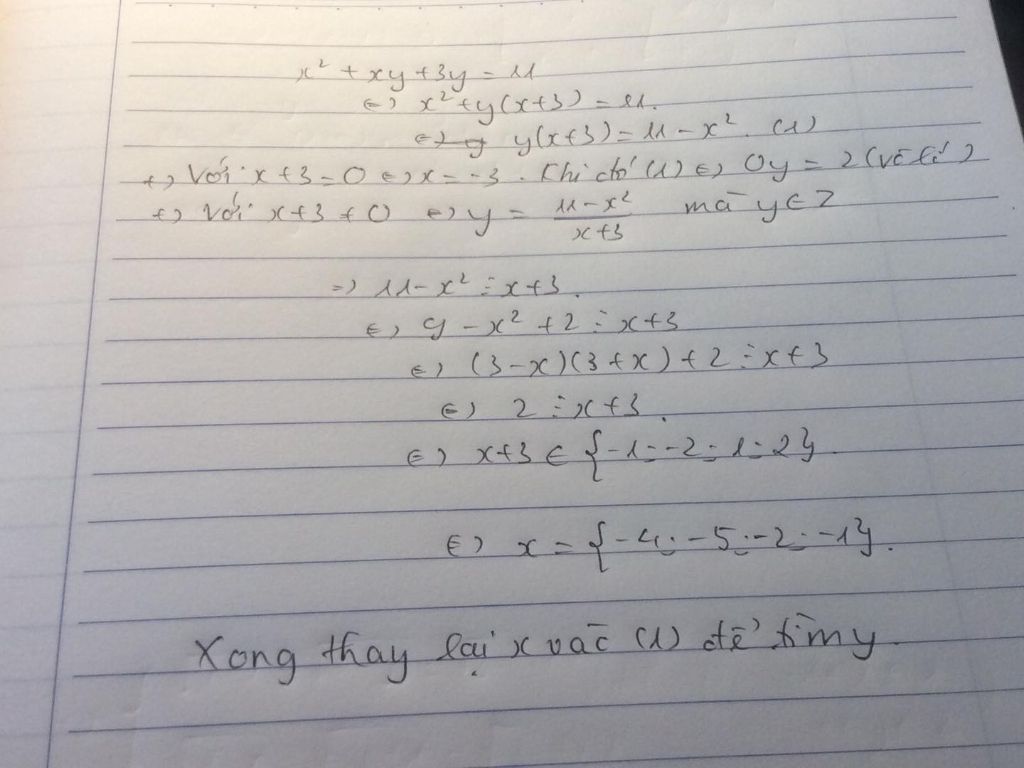 x² + xy + 3y = 11
⇔ x² + y(x+3) = 11.
⇔ y(x+3) = 11 - x². (1)
+, Với x + 3 = 0 ⇔ x = -3. Khi đó (1) ⇔ 0y = 2 (Vô lí)
+, Với x + 3 ≠ 0 ⇔ y = (11 - x²)/(x+3) mà y ∈ Z
=> 11 - x² ⋮ x+3.
⇔ 9 - x² + 2 ⋮ x+3
⇔ (3-x)(3+x) + 2 ⋮ x+3
⇔ 2 ⋮ x+3.
⇔ x+3 ∈ {-1; -2; 1; 2}.
⇔ x = {-4; -5; -2; -1}.
Xong thay lại x vào (1) để tìm y.